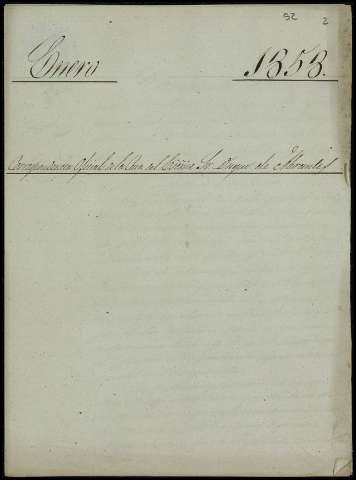 92 2
Enero 1858.
Correspondencia Oficial de la Casa del Excmo Sr. Duque de Abrantes